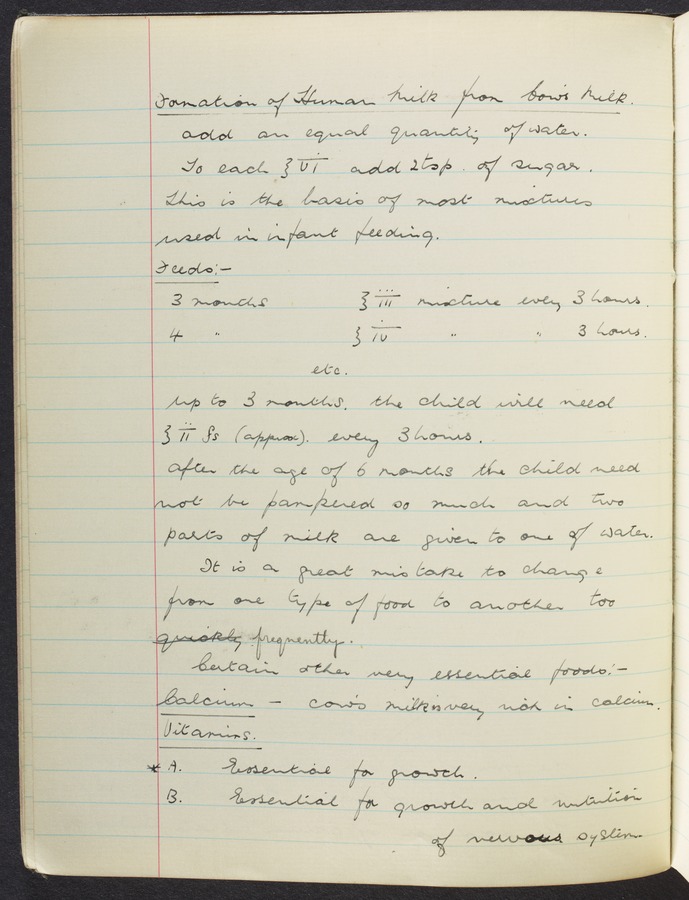 Formation of Human Milk from Cow's Milk.
add an equal quantity of water.
To each ℥ VI add 2 tsp. of sugar.
This is the basis of most mixtures
used in infant feeding.
Feeds:-
3 months ℥ III mixture every 3 hours.
4 " ℥ IV " " 3 hours.
etc.
up to 3 months. the child will need
℥ II ss (approx). every 3 hours.
after the age of 6 months the child need
not be pampered so much and two
parts of milk are given to one of water.
It is a great mistake to change
from one type of food to another too
quickly frequently.
Certain other very essential foods:-
Calcium - cow's milk is very rich in calcium.
Vitamins.
* A. Essential for growth.
B. Essential for growth and nutrition
of nervous system